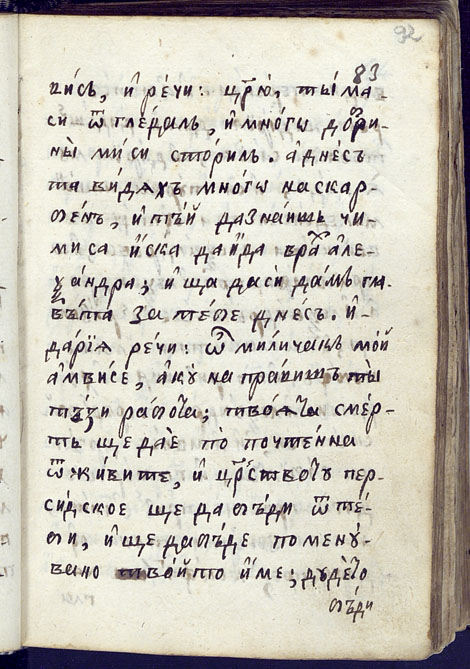 92
83
вись, и҆ ре́чи: цр҃ю̀, ты̀ ма-
си ѿ гле́далъ, и҆ мно́гѡ добри-
ны̀ ми́ си стори́лъ. а҆ дне́съ
та ви́дѧхъ мно́гѡ наскар-
бе́нъ, и҆ тѣ́й да зна́ишъ чи-
ми са и҆́ска да и҆́да вра́ а҆ле-
ѯа́ндра; и҆ ща да си да́мъ гла-
въ́та за те́бе дне́съ. и҆-
дарі́ѧ речи: ѿ ми́личакъ мо́й
а҆мви́се, а҆кꙋ̀ напра́вишъ ты̀
тъ́зи ра́бота; тво́ѧта сме́р-
ть ще да є҆̀ по̀ почте́нна
ѿ живи́те, и҆ цр҃ство́то пер-
си́дское ще да бъ́ди ѿ те́-
би, и҆ ще да бъ́де поменꙋ́-
вано тво́йто и҆́ме; дꙋде́то
бъ́ди